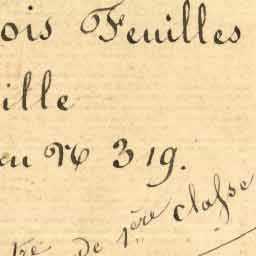 ois Feuilles
ille
au Nº 319.
tre de 1ère classe